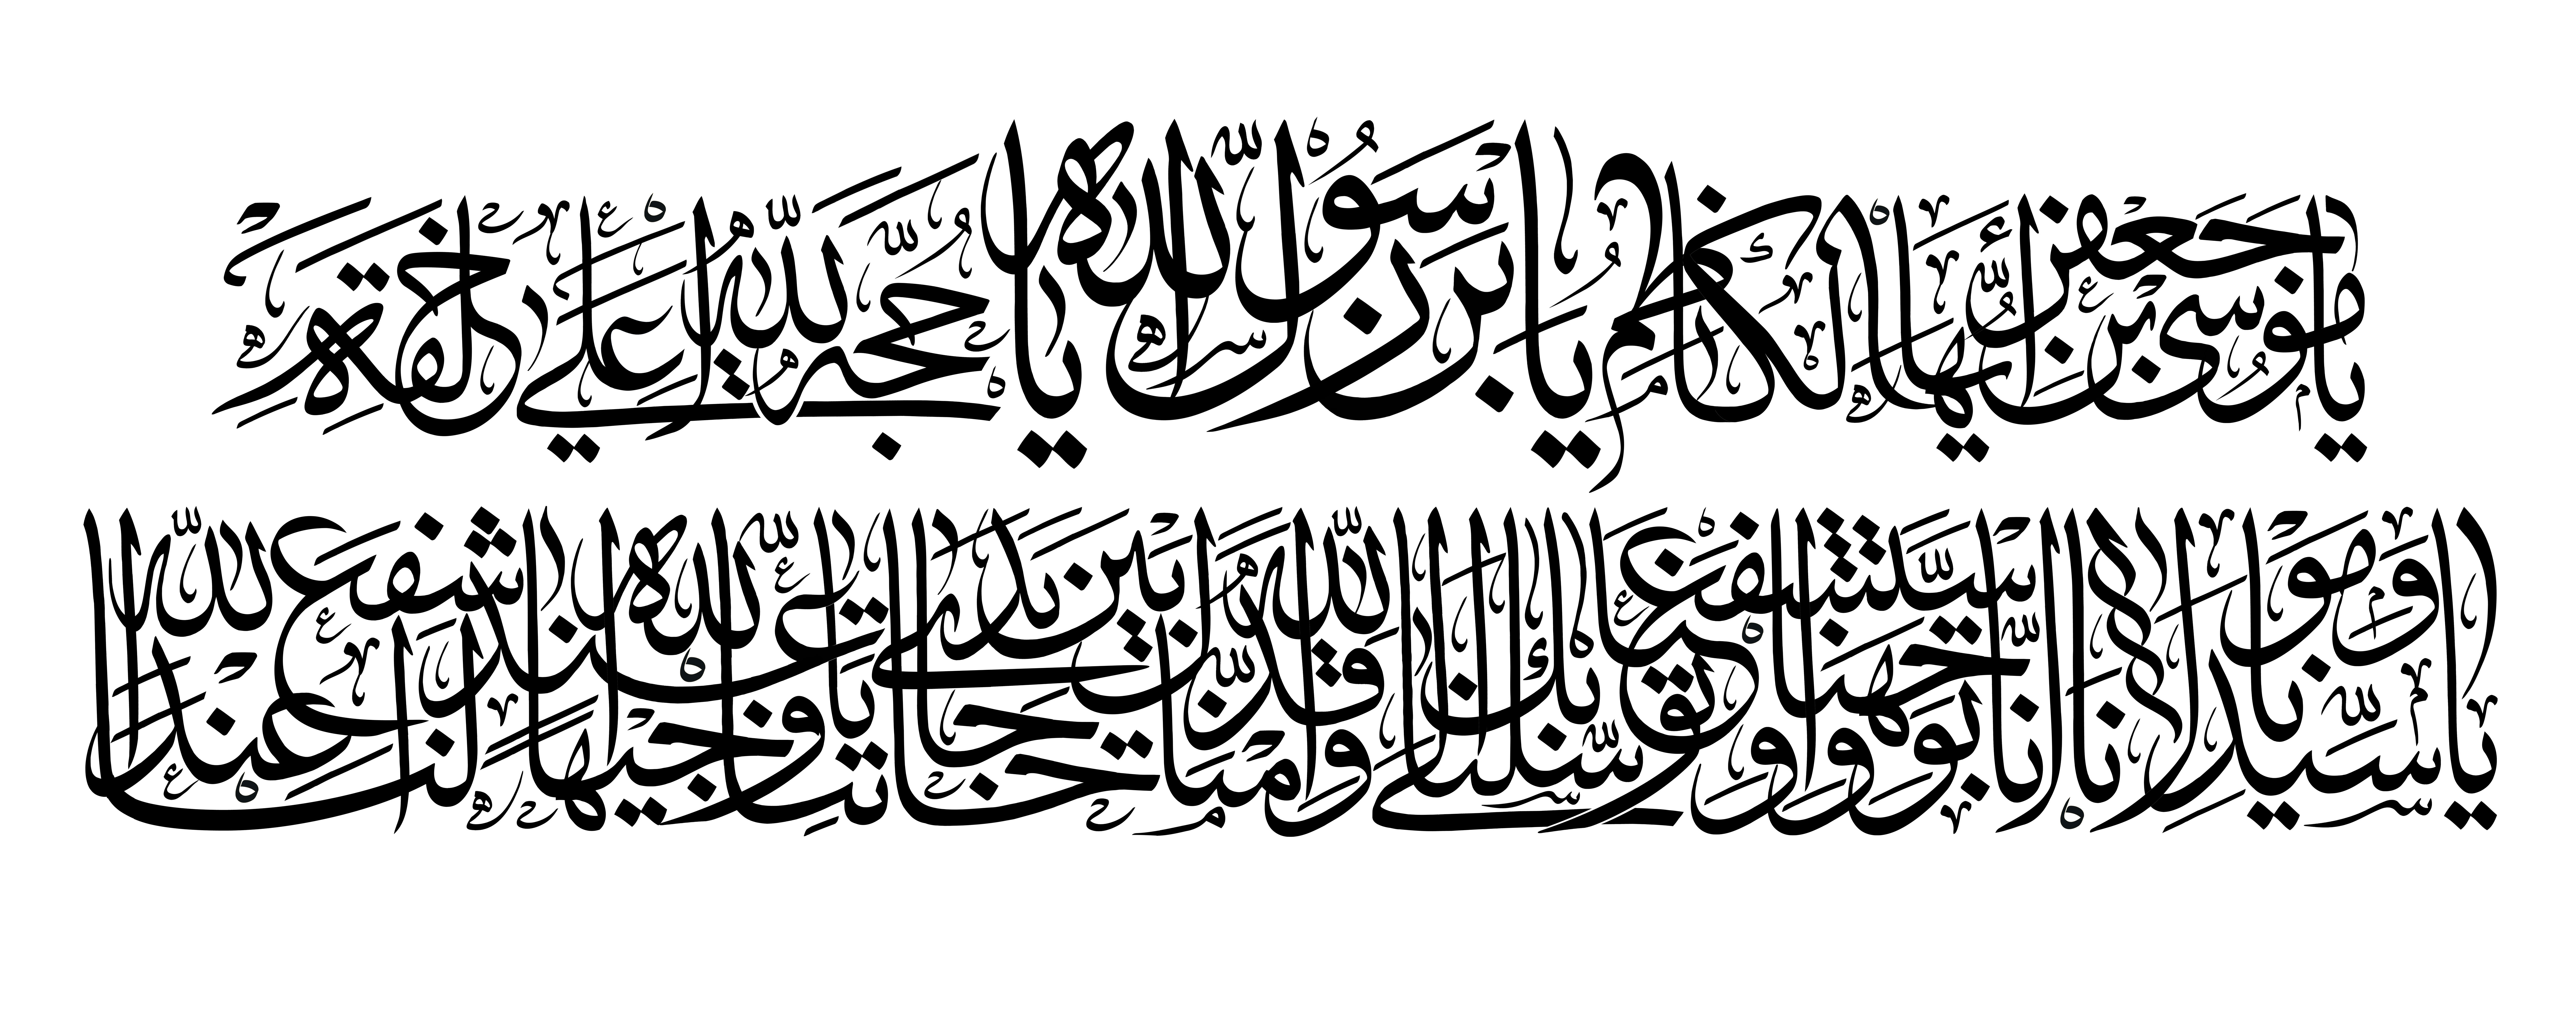 يَا مُوسَى بْنَ جَعْفَرٍ أَيُّهَا الْكَاظِمُ يَا بْنَ رَسُولِ اللّٰهِ يَا حُجَّةَ اللّٰهِ عَلىٰ خَلْقِهِ
يَا سَيِّدَنَا وَمَوْلَانَا إِنَّا تَوَجَّهْنَا وَاسْتَشْفَعْنَا وَتَوَسَّلْنَا بِكَ إِلَى اللّٰهِ وَقَدَّمْنَاكَ بَيْنَ يَدَيْ حَاجَاتِنَا يَا وَجِيهًا عِنْدَ اللّٰهِ اشْفَعْ لَنَا عِنْدَ اللّٰهِ